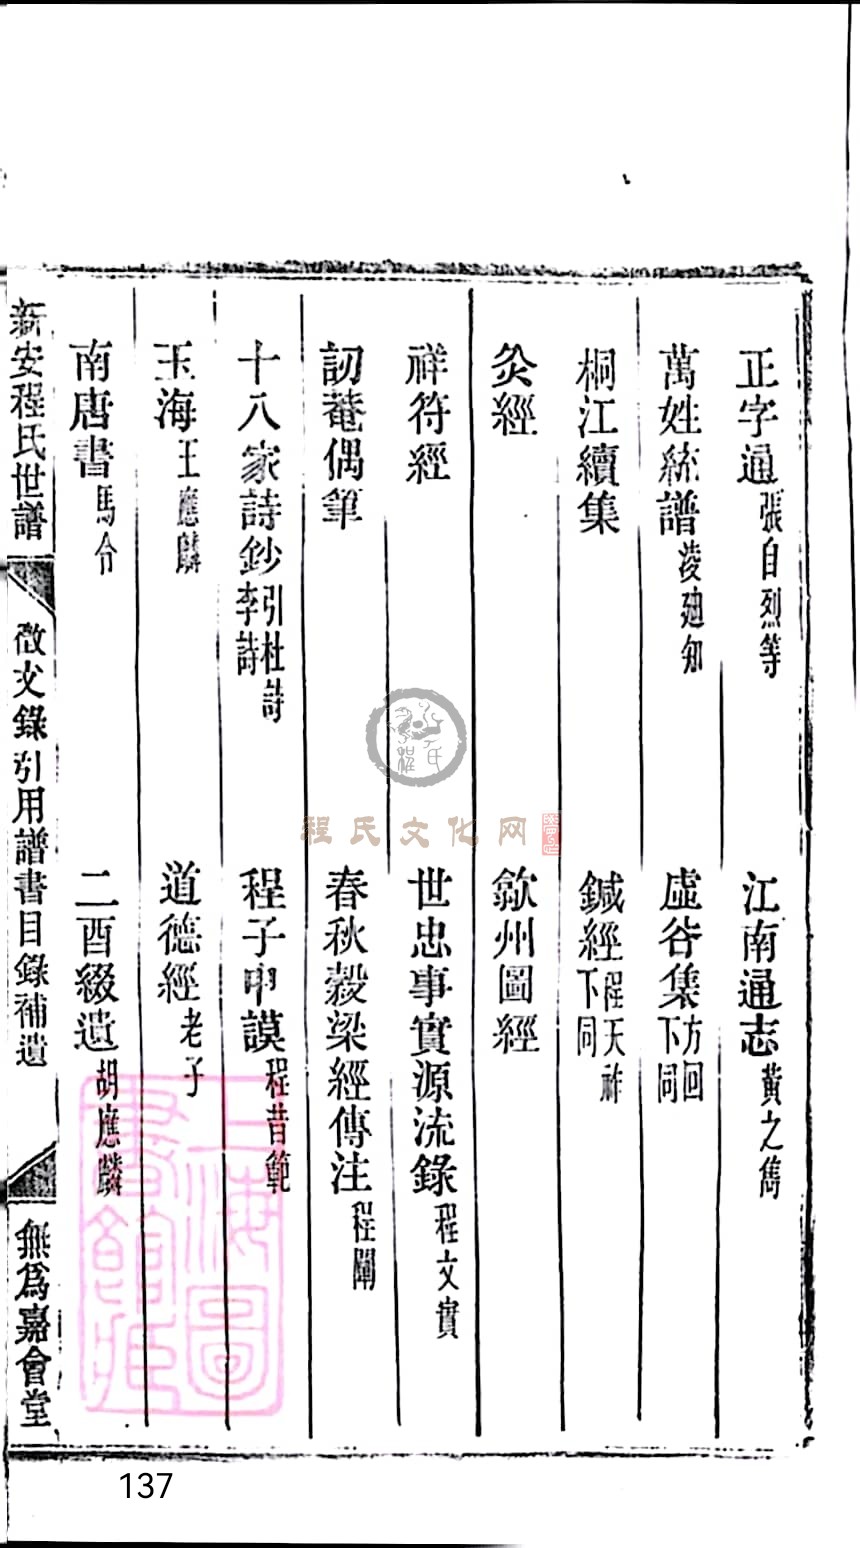 正字通張自烈等 江南通志黃之雋
萬姓統譜淩廸知 虛谷集方回下同
桐江續集 鍼經程天祚下同
灸經 歙州圖經
祥符經 世忠事實源流錄程文實
訒菴偶筆 春秋穀梁經傳注程闡
十八家詩鈔引杜詩李詩 程子申謨程昔範
玉海王應麟 道德經老子
南唐書馬令 二酉綴遺胡應麟
新安程氏世譜 徵文錄引用譜書目錄補遺 無爲嘉會堂
程氏
程氏文化网
上海圖書館藏
137